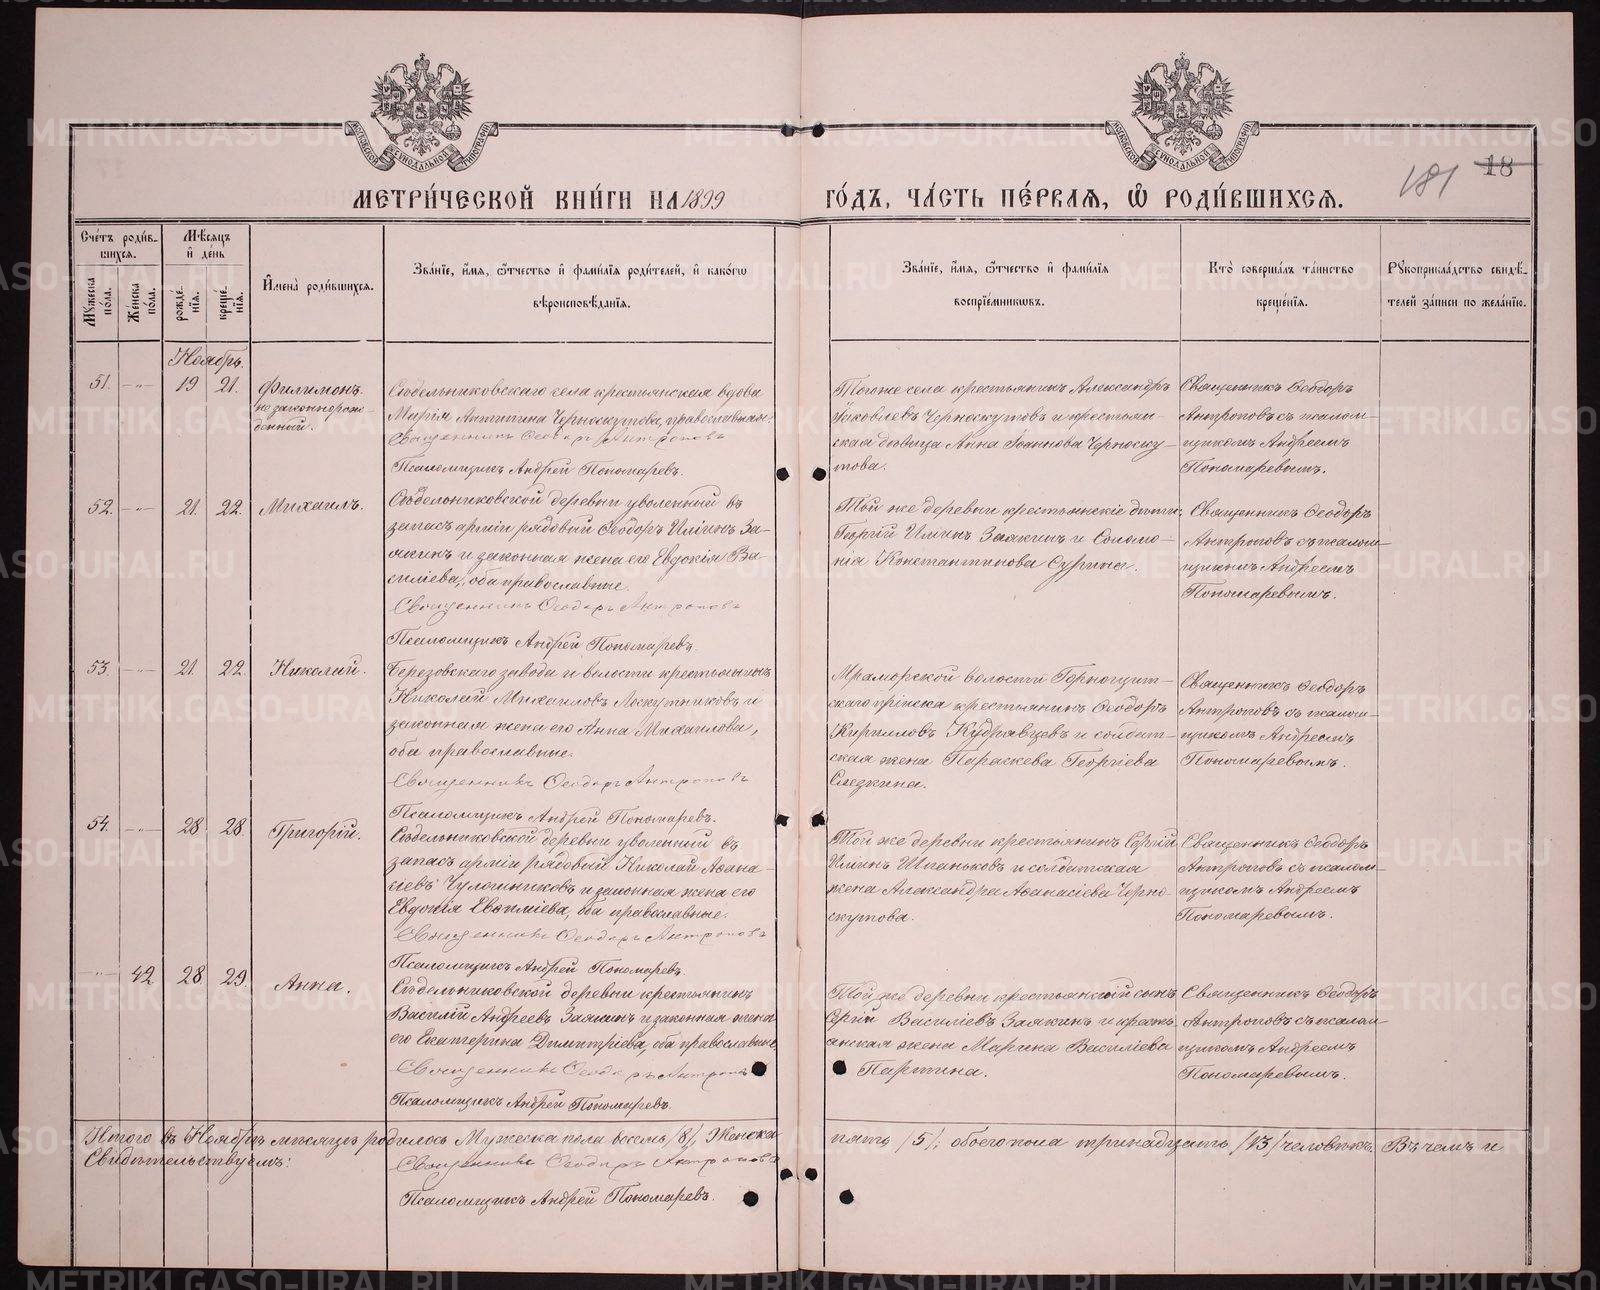 МЕТРИ́ЧЕСКОЙ КНИ́ГИ НА 1899 ГО́ДЪ, ЧА́СТЬ ПЕ́РВАЯ, Ѡ РОДИ́ВШИХСЯ.
181 18
Сче́тъ роди́в-
шихся.
Му́жеска по́ла.
Же́нска по́ла.
Мѣ́сяцъ и́ де́нь
рожде́-нїя.
креще́-нїя.
И́мена̀ роди́вшихся.
Зва́нїе, и́мя, ѻ́тчество и́ фами́лїя роди́телей, и́ како́гѡ
вѣроисповѣ́данїя.
Зва́нїе, и́мя, ѻ́тчество и́ фами́лїя
воспрїе́мникѡвъ.
Кто̀ соверша́лъ та́инство
креще́нїя.
Рꙋкоприкла́дство свидѣ́-
телей за́писи по жела́нїю.
Ноябрь.
51. — 19 21. Филимонъ.
незаконнорож-
денный.
Сѣдельниковскаго села крестьянская вдова
Марія Антипина Черноскутова, православная.
Священникъ Ѳеодоръ Антроповъ
Псаломщикъ Андрей Пономаревъ.
Тогоже села крестьянинъ Александръ
Яковлевъ Черноскутовъ и крестьян-
ская дѣвица Анна Іоаннова Черноску-
това.
Священникъ Ѳеодоръ
Антроповъ съ псалом-
щикомъ Андреемъ
Пономаревымъ.
52. — 21. 22. Михаилъ.
Сѣдельниковской деревни уволенный въ
запасъ арміи рядовый Ѳеодоръ Илiинъ За-
якинъ и законная жена его Евдокія Ва-
силіева, оба православные.
Священникъ Ѳеодоръ Антроповъ
Псаломщикъ Андрей Пономаревъ.
Той же деревни крестьянскіе дѣти:
Георгій Илiинъ Заякинъ и Соломо-
нія Константинова Сурина.
Священникъ Ѳеодоръ
Антроповъ съ псалом-
щикомъ Андреемъ
Пономаревымъ.
53. — 21. 22. Николай.
Березовскаго завода и волости крестьянинъ
Николай Михаиловъ Лоскутниковъ и
законная жена его Анна Михаилова,
оба православные.
Священникъ Ѳеодоръ Антроповъ
Псаломщикъ Андрей Пономаревъ.
Мраморской волости Горнощит-
скаго пріиска крестьянинъ Ѳеодоръ
Кирилловъ Кудрявцевъ и солдат-
ская жена Параскева Георгіева
Слезкина.
Священникъ Ѳеодоръ
Антроповъ съ псалом-
щикомъ Андреемъ
Пономаревымъ.
54. — 28 28. Григорій.
Сѣдельниковской деревни уволенный въ
запасъ арміи рядовый Николай Аѳана-
сіевъ Чулошниковъ и законная жена его
Евдокія Евѳиміева, оба православные.
Священникъ Ѳеодоръ Антроповъ
Псаломщикъ Андрей Пономаревъ.
Той же деревни крестьянинъ Сергій
Илiинъ Шпаньковъ и солдатская
жена Александра Аѳанасіева Черно-
скутова.
Священникъ Ѳеодоръ
Антроповъ съ псалом-
щикомъ Андреемъ
Пономаревымъ.
— 42 28. 29. Анна.
Сѣдельниковской деревни крестьянинъ
Василій Андреевъ Заякинъ и законная жена
его Екатерина Димитріева, оба православные.
Священникъ Ѳеодоръ Антроповъ
Псаломщикъ Андрей Пономаревъ.
Той же деревни крестьянскій сынъ
Сергій Василіевъ Заякинъ и кресть-
янская жена Марина Василіева
Партина.
Священникъ Ѳеодоръ
Антроповъ съ псалом-
щикомъ Андреемъ
Пономаревымъ.
Итого въ Ноябрѣ мѣсяцѣ родилось Мужеска пола восемь /8/, Женска пять /5/; обоего пола тринадцать /13/ человѣкъ. Въ чемъ и
Свидѣтельствуемъ:
Священникъ Ѳеодоръ Антроповъ
Псаломщикъ Андрей Пономаревъ.
METRIKI.GASO-URAL.RU